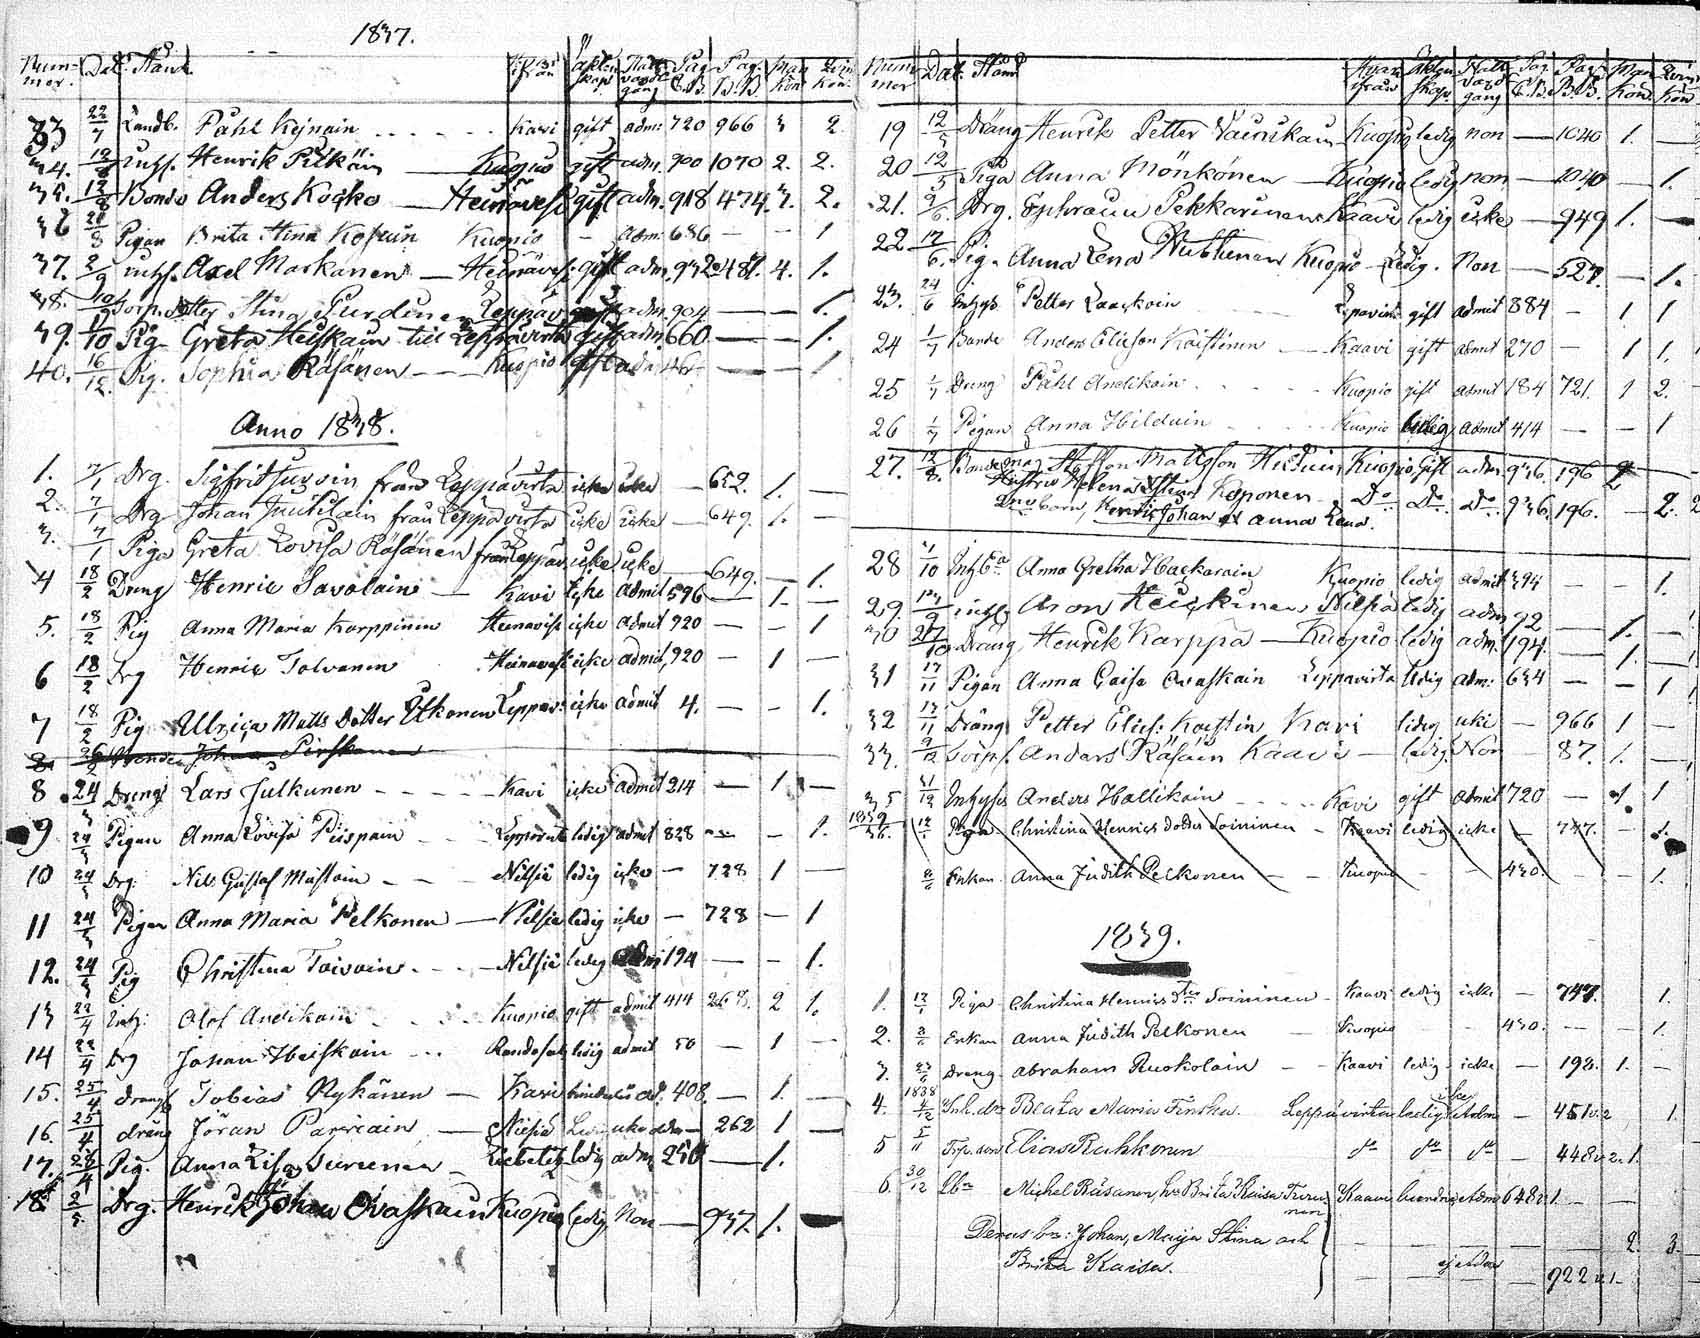 1837.
Nummer. Dat. Stånd. Hvarifrån Äktenskap Nattvardsgång Pag. C.B. Pag. B.B. Mankön Qvinkön.
33 22/7 Landb. Påhl Kejnain Kavi gift adm: 720 966 3 2
34. 12/8 inhs. Henrik Pitkäin Kuopio gift adm. 900 1070 2. 2.
35. 12/8 Bonde Anders Kocko Heinävesi gift adm. 918 474. 3. 2.
36 28/8 Pigan Brita Stina Kosuin Kuopio - Adm: 686 - - 1
37. 2/9 inhs. Axel Markanen Heinävesi gift adm. 932 481. 4. 1.
38. 10/9 Torp. dotter Stina Purdinen Leppäv. gift adm. 904 - - 1.
39. 11/10 Pig. Greta Heiskain till Leppävirta gift adm. 660 - - 1.
40. 16/12 Pig. Sophia Räsänen Kuopio gift - - 1
Anno 1838.
1. 7/1 Drg. Sigfrid från Leppävirta icke icke - 652. 1. -
2. 7/1 Drg Johan från Leppävirta icke icke - 649. 1. -
3. 7/1 Piga Greta Lovisa Räsänen från Leppäv. icke icke - 649. - 1.
4 18/2 Dreng Henric Savolain Kavi icke Admit 596 - 1. -
5. 18/2 Pig Anna Maria Karppinen Heinavesi icke Admit 920 - - 1
6 18/2 Drg Henric Tolvanen Heinavesi icke admit 920 - 1 -
7 18/2 Pig Ulrica Matts Dotter Utkonen Leppäv: icke admit 4. - - 1.
8 Bonde Johan Pirskanen
8 24/3 Dreng Lars Julkunen Kavi icke admit 214 - 1 -
9 24/3 Pigan Anna Lovisa Piispain Leppävirta ledig admit 828 - - 1.
10 24/3 Drg. Nils Gustaf Mastain Nilsiä ledig icke - 728 1 -
11 24/3 Pigan Anna Maria Pelkonen Nilsiä ledig icke - 728 - 1
12. 24/3 Pig Christina Toivain Nilsiä ledig adm. 194 - - 1.
13 22/4 Inh: Olof Andikain Kuopio gift admit 414 267. 2 1.
14 22/4 Drg Johan Heiskain Randasal ledig admit 50 - 1 -
15. 25/4 dräng Tobias Nykänen Kavi ad. 408. - 1. -
16. 25/4 dräng Jöran Parviain Nilsiä adm - 262 1 -
17. 28/4 Pig. Anna Lisa Surunen ledig adm 250 - 1.
18. 2/5 Drg. Henrik Johan Ovaskain Kuopio ledig Non - 937. 1. -
Nummer Dat. Stånd Hvarifrån Äktenskap Nattvardsgång Pag. C.B. Pag. B.B. Mankön. Qvinkön
19 12/5 Dräng Henrik Petter Vainikain Kuopio ledig non - 1040 1. -
20 12/5 Piga Anna Mönkönen Kuopio ledig non - 1040 - 1.
21. 9/6. Drg. Ephraim Pekkarinen Kaavi ledig icke - 949 1. -
22. 17/6. Pig. Anna Lena Kuopio Ledig. Non - 527. - 1.
23. 24/6 Inhys Petter Laackoin Lepavirta gift admit 884 - 1 1
24 1/7 Bonde Anders Eliesson Kaistinen Kaavi gift admit 270 - 1 1.
25 1/7 Dreng Påhl Andikain Kuopio gift admit 184 721. 1 2.
26 1/7 Pigan Anna Hilduin Kuopio ledig admit 414 - - 1
27. 12/8. Bondeman Staffan Mattsson Hilduin Kuopio Gift adm 936. 196
Hustru Helena Stina Koponen Do Do Do 936. 196. - 2.
Dras barn, Henric Johan o anna Lena.
28 1/10 Inhsa Anna Gretha Hackarain Kuopio ledig admit 394 - - 1.
29. inhs. Aron Heickinen Nilsiä ledig adm. 92 - 1. -
30 27/10 Dräng Henrik Karppa Kuopio ledig adm. 194. - 1. -
31 13/11 Pigan Anna Caisa Ovaskain Leppävirta ledig adm: 634 - - 1
32 13/11 Dräng Petter Elies: Kaistin Kavi ledig icke - 966 1 -
33. 9/12 Torps. Anders Räsäin Kaavi ledig. Non - 87. 1. -
35 31/12 Inhyses Anders Hallikain Kavi gift admit 720 - 1. 1
1839 36. 12/1 Piga Christina Henrics dotter Soininen Kaavi ledig icke - 747. - 1.
Enkan Anna Judith Pelkonen Kuopio - - 430. - 1.
1839.
1. 12/1 Piga Christina Henrics dter Soininen Kaavi ledig icke - 747. 1.
2. Enkan anna Judith Pelkonen Kuopio - - 430. - - 1.
3. Dreng abraham Ruokolain Kaavi ledig icke - 198. 1. -
1838
4. 4/12 Inh. dr Beata Maria Leppävirta ledig icke Adm - 451 v. 2 1.
5 5/11 Torp. son Elias Rahkonen do do do - 448 v. 2. 1.
6. 30/12 Lbr Michel Räsänen, hu Brita Kaisa Turunen Kaavi Adm 648 v. 1. - -
Deras bn: Johan, Maija Stina och - - - 2. 3.
Brita Kaisa. ej Adm 922 v. 1.